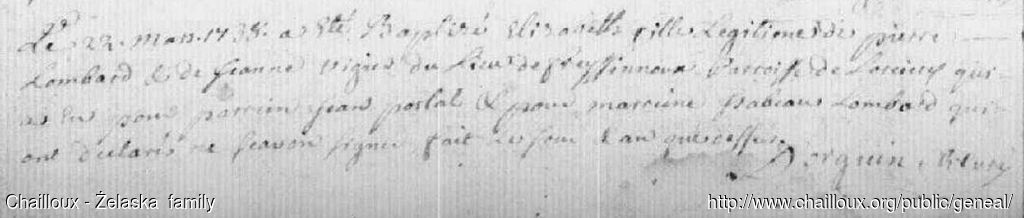 Le 22. Mars. 1738. a Eté Baptisé Elizabeth fille Legitime de pierre
Lombard & de Jeanne Vigier du Lieu de freyssinnoux Parroisse de qui-
a Eu pour parrein jean portal & pour marreine isabeau Lombard qui-
ont declarés ne scavoir signer fait les jour & an que dessus
Dorguin. Curé
Chailloux - Żelaska family
http://www.chailloux.org/public/geneal/